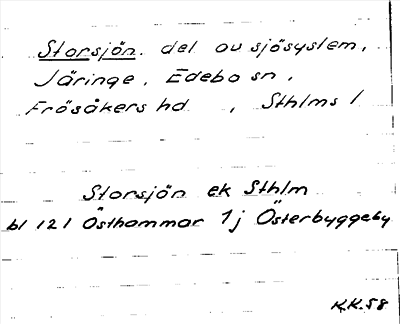 Storsjön. del av sjösystem,
Järinge, Edebo sn,
Frösåkers hd , Sthlms l
Storsjön ek Sthlm
bl 121 Östhammar 1j Österbyggeby
K.K.58